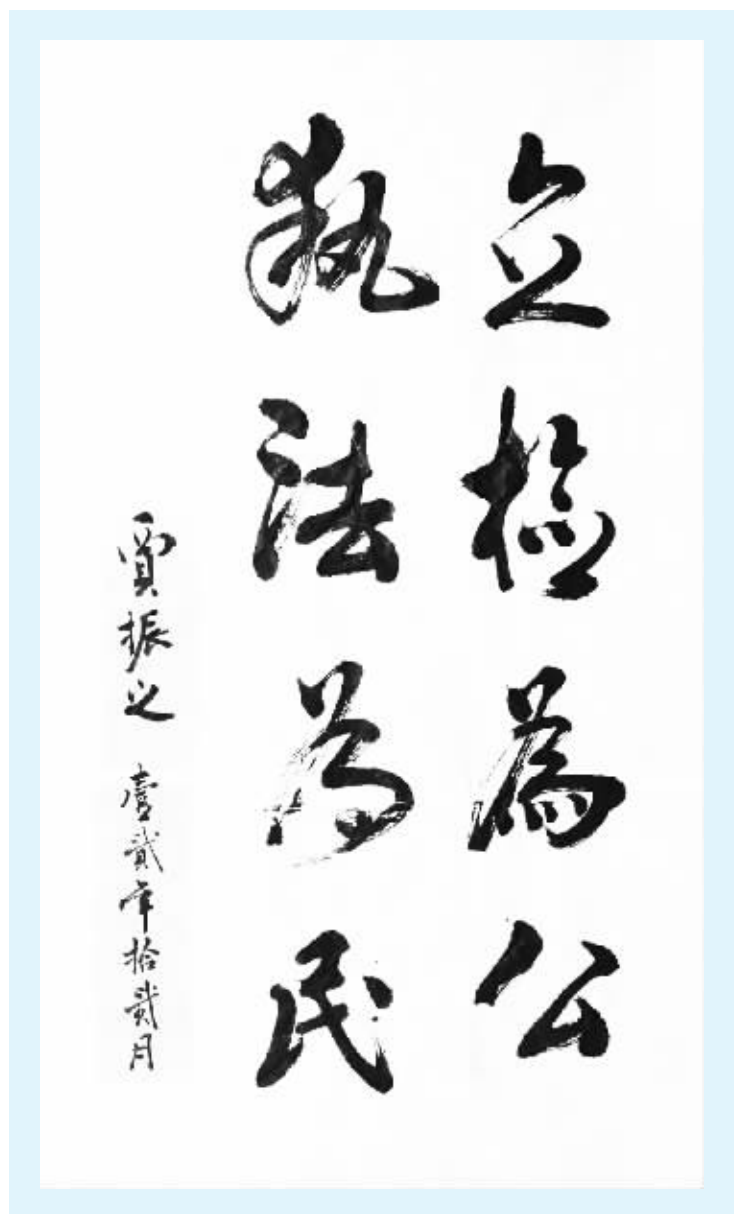 立檢為公
执法为民
賈振之 壹貳年拾貳月